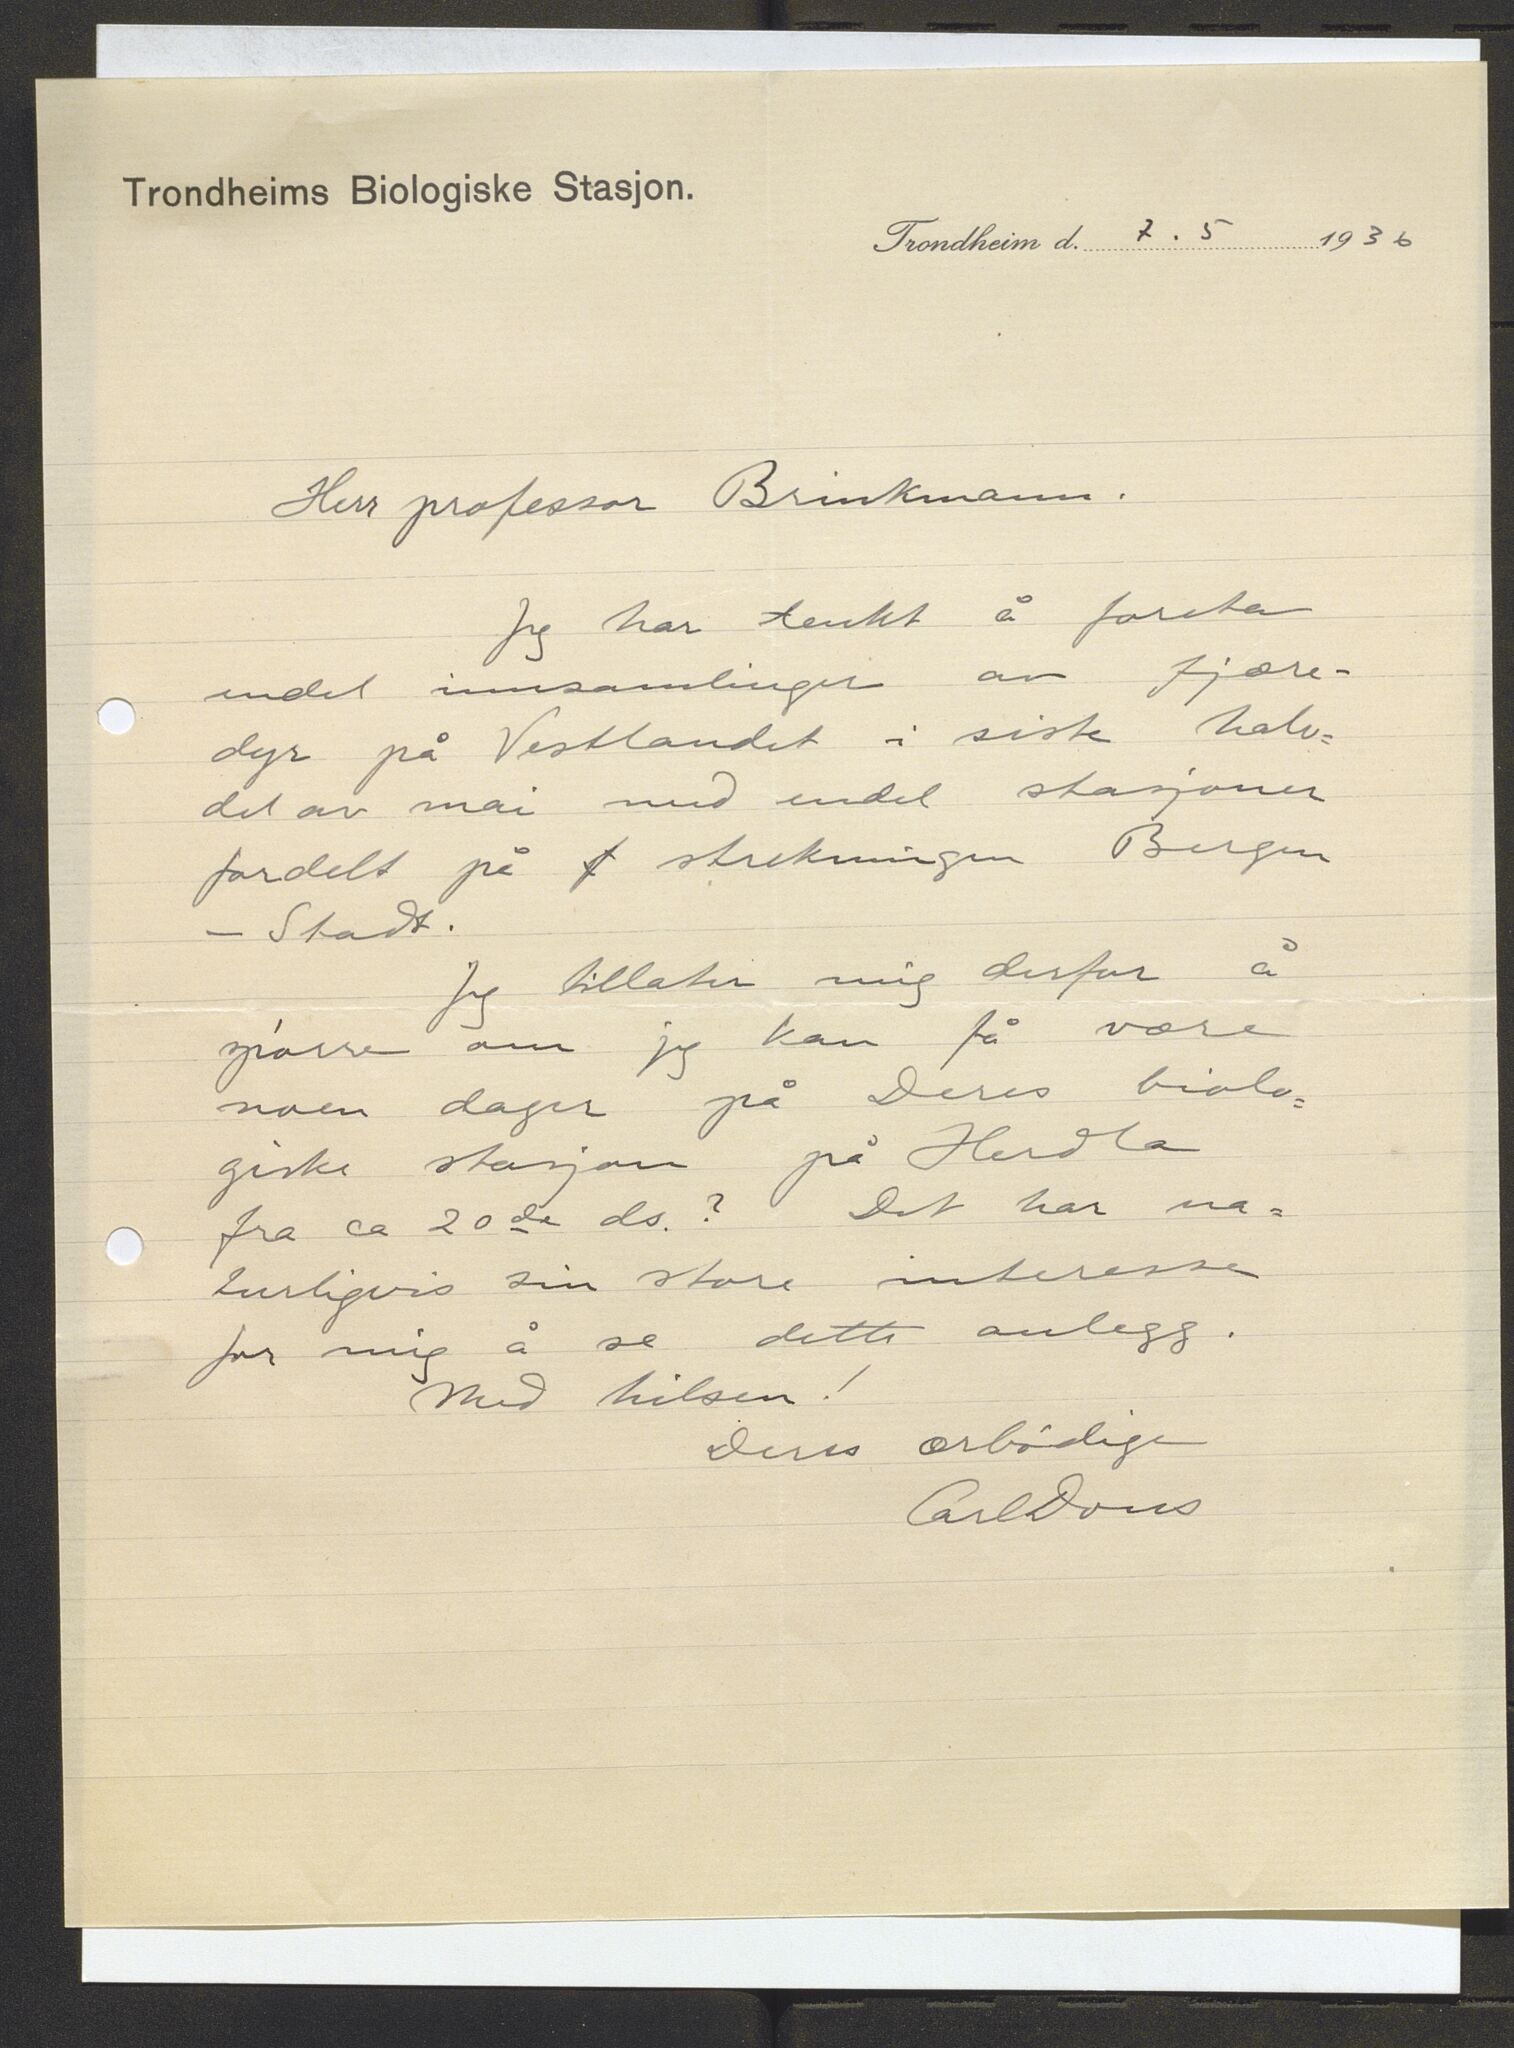 Trondheims Biologiske Stasjon.
Trondheim d. 7.5 1936
Herr professor Brinkmann.
Jeg har tenkt å foreta
endel innsamlinger av fjære-
dyr på Vestlandet i siste halv=
del av mai med endel stasjoner
fordelt på strekningen Bergen
— Stadt.
Jeg tillater mig derfor å
spørre om jeg kan få være
noen dager på Deres biolo=
giske stasjon på Herdla
fra ca 20de ds.? Det har na=
turligvis sin store interesse
for mig å se dette anlegg.
Med hilsen!
Deres ærbødige
Carl Dons